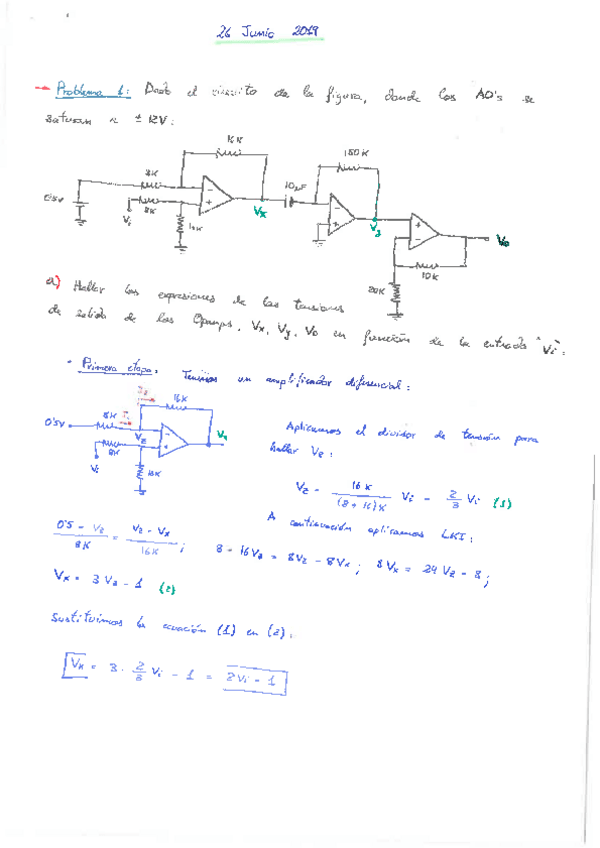 26 Junio 2019
→ Problema 1: Dado el circuito de la figura, donde los AO's se
saturan a ± 12V:
16K
150K
8K
10µF
0'5V
8K
Vi
Vx
16K
Vy
Vo
10K
20K
a) Hallar las expresiones de las tensiones
de salida de los Opamps, Vx, Vy, Vo en función de la entrada "Vi":
• Primera etapa: Tenemos un amplificador diferencial:
16K
8K
0'5V
Vz
Vx
Vi
8K
16K
Aplicamos el divisor de tensión para
hallar Vz:
Vz = 16K / (8+16)K Vi = 2/3 Vi (1)
A continuación aplicamos LKI:
0'5 - Vz / 8K = Vz - Vx / 16K ; 8 - 16Vz = 8Vz - 8Vx ; 8Vx = 24Vz - 8 ;
Vx = 3Vz - 1 (2)
Sustituimos la ecuación (1) en (2):
Vx = 3 · 2/3 Vi - 1 = 2Vi - 1